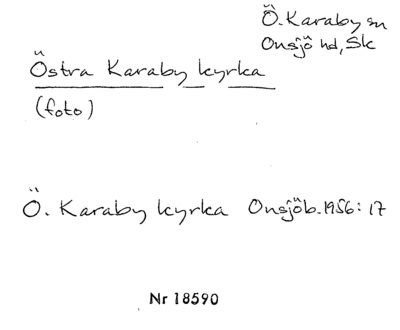 Ö. Karaby sn
Onsjö hd, Sk
Östra Karaby kyrka
(foto)
Ö. Karaby kyrka Onsjöb. 1956:17
Nr 18590